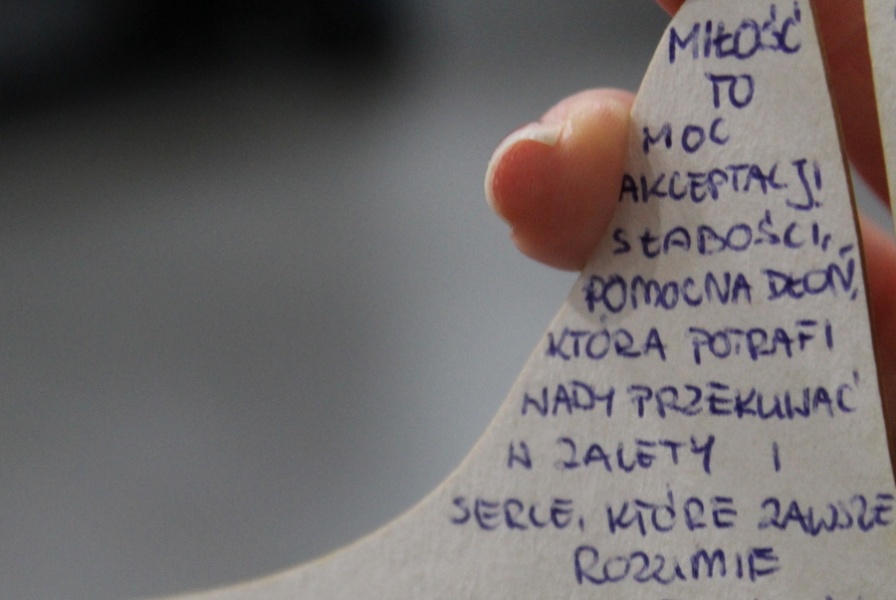 MIŁOŚĆ
TO
MOC
AKCEPTACJI
SŁABOŚCI,
POMOCNA DŁOŃ,
KTÓRA POTRAFI
WADY PRZEKUWAĆ
W ZALETY I
SERCE, KTÓRE ZAWSZE
ROZUMIE